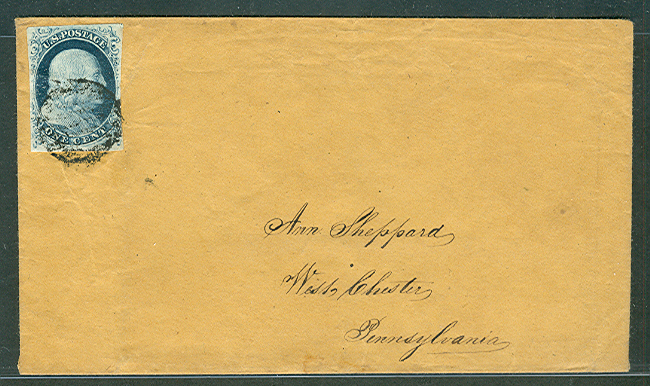 U.S. POSTAGE
ONE CENT
Ann Sheppard,
West, Chester,
Pennsylvania,